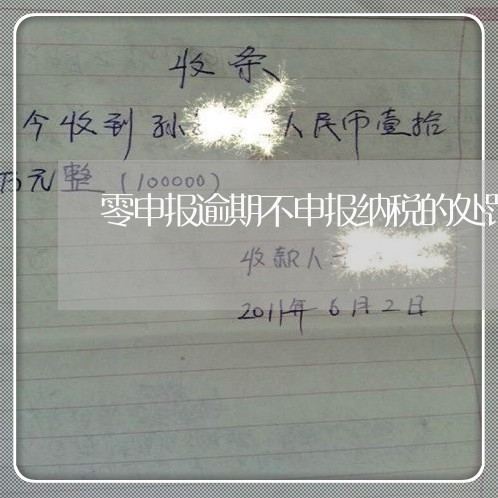 收条
今收到孙 人民币壹拾
万元整(100000)
零申报逾期不申报纳税的处罚
收款人
2011年6月2日